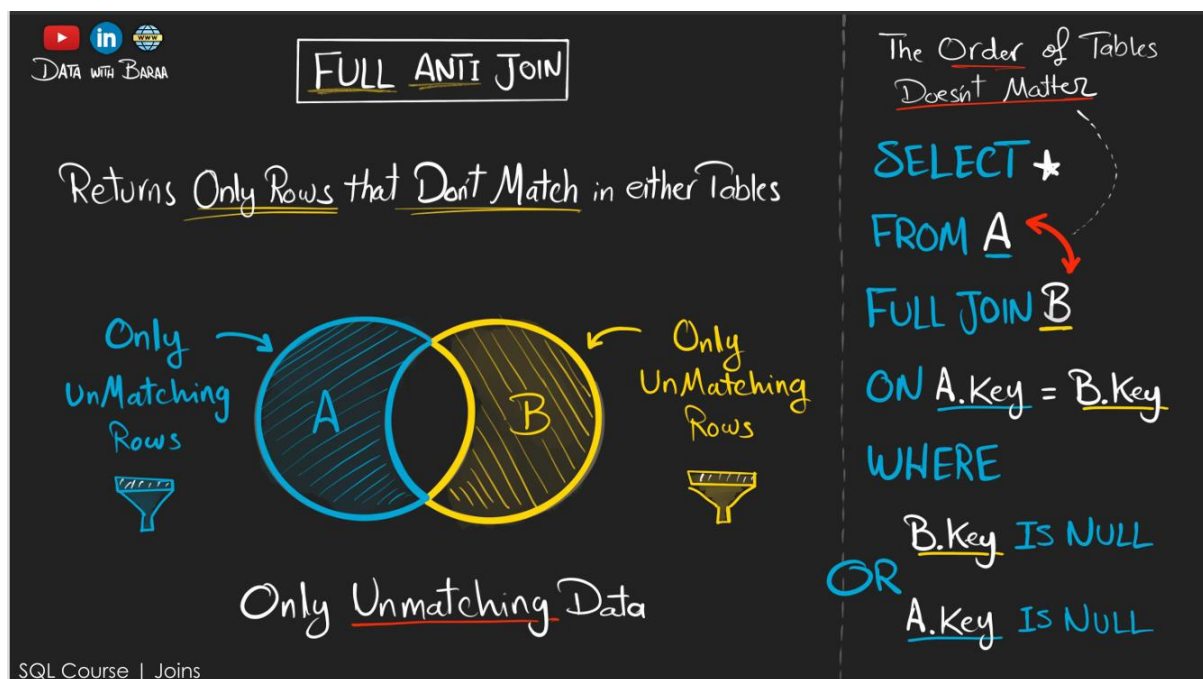 WWW
DATA WITH BARAA
FULL ANTI JOIN
Returns Only Rows that Don't Match in either Tables
Only
UnMatching
Rows
A
B
Only
UnMatching
Rows
Only Unmatching Data
SQL Course | Joins
The Order of Tables
Doesn't Matter
SELECT *
FROM A
FULL JOIN B
ON A.Key = B.Key
WHERE
B.Key IS NULL
OR
A.Key IS NULL